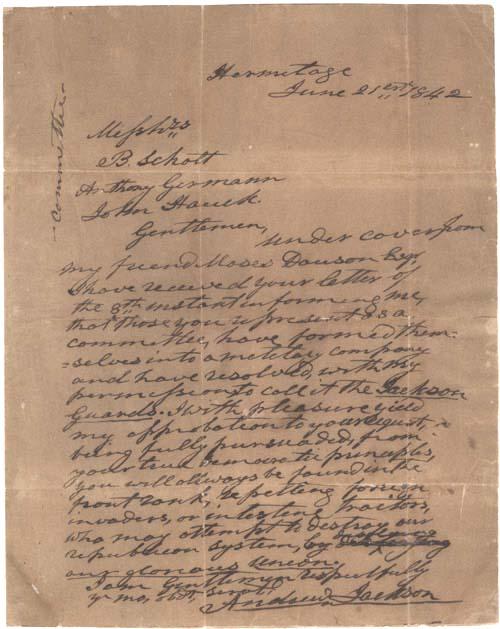 Hermitage
June 21rst, 1842
Messhrs
B. Schott
Anthony Germann
John Hauck.
Committee
Gentlemen,
under cover from
my friend Moses Dawson Esqr,
I have received your letter of
the 8th instant informing me,
that those you represent as a
committee, have formed them=
=selves into a meletary company
and have resolved, with my
permession to call it the Jackson
Guards. I with pleasure yield
my approbation to your request,
being fully pursuaded, from
your true democratic principles,
you will allways be found in the
front rank, repelling foreign
invaders, or intestine traitors,
who may attempt to destroy our
republican system, by
our glorious union.
I am Gentlemen respectfully
yr mo, obdt, servt,
Andrew Jackson